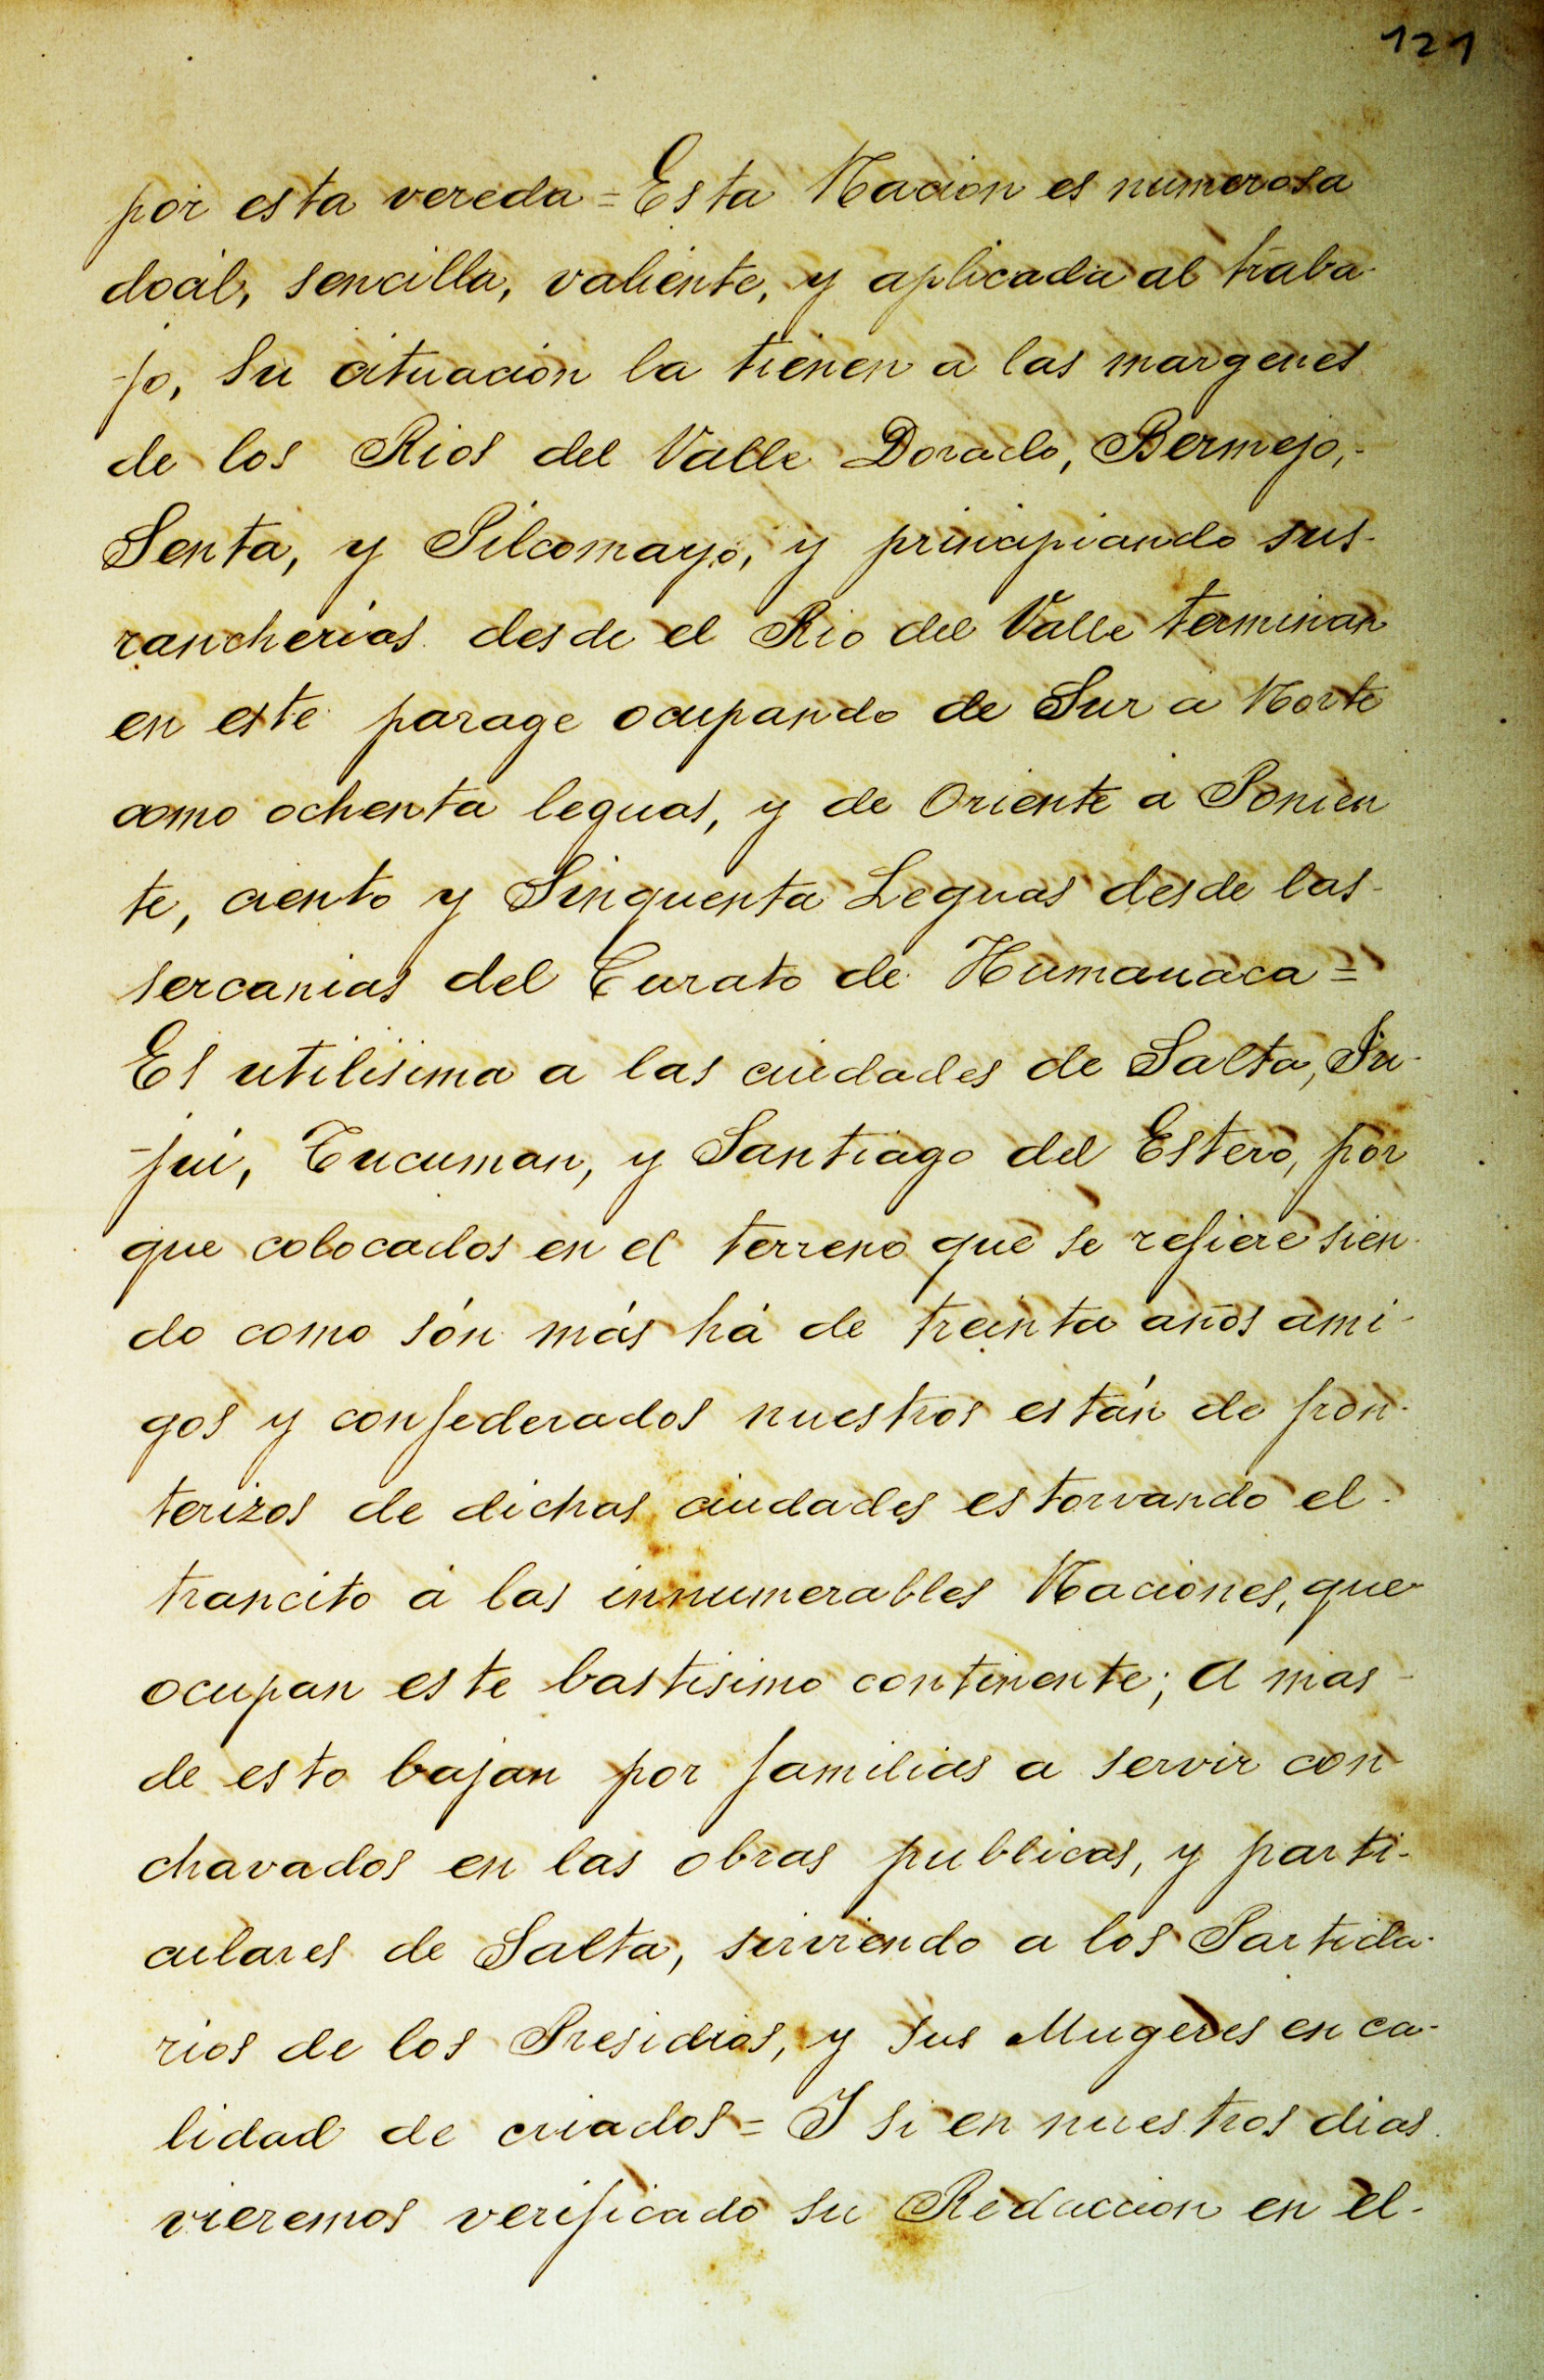 121
por esta vereda = Esta Nacion es numerosa
docil, sencilla, valiente, y aplicada al traba-
-jo, su cituación la tienen a las margenes
de los Rios del Valle Dorado, Bermejo,-
Senta, y Pilcomayo, y principiando sus-
rancherias desde el Rio del Valle terminan
en este parage ocupando de Sur a Norte
como ochenta leguas, y de Oriente a Ponien
te, ciento y Sinquenta Leguas desde las-
sercanias del Curato de Humauaca =
Es utilisima a las ciudades de Salta, Ju-
-jui, Tucuman, y Santiago del Estero, por
que colocados en el terreno que se refiere sien-
do como són más há de treinta años ami-
gos y confederados nuestros están de fron-
terizos de dichas ciudades estorvando el-
trancito á las innumerables Naciones, que
ocupan este bastisimo continente; A mas-
de esto bajan por familias a servir con-
chavados en las obras publicas, y parti-
culares de Salta, sirviendo a los Partida-
rios de los Presidios, y sus Mugeres en ca-
lidad de criados = I si en nuestros dias
vieremos verificado su Reduccion en el-